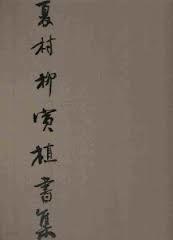 夏村柳寅植書集